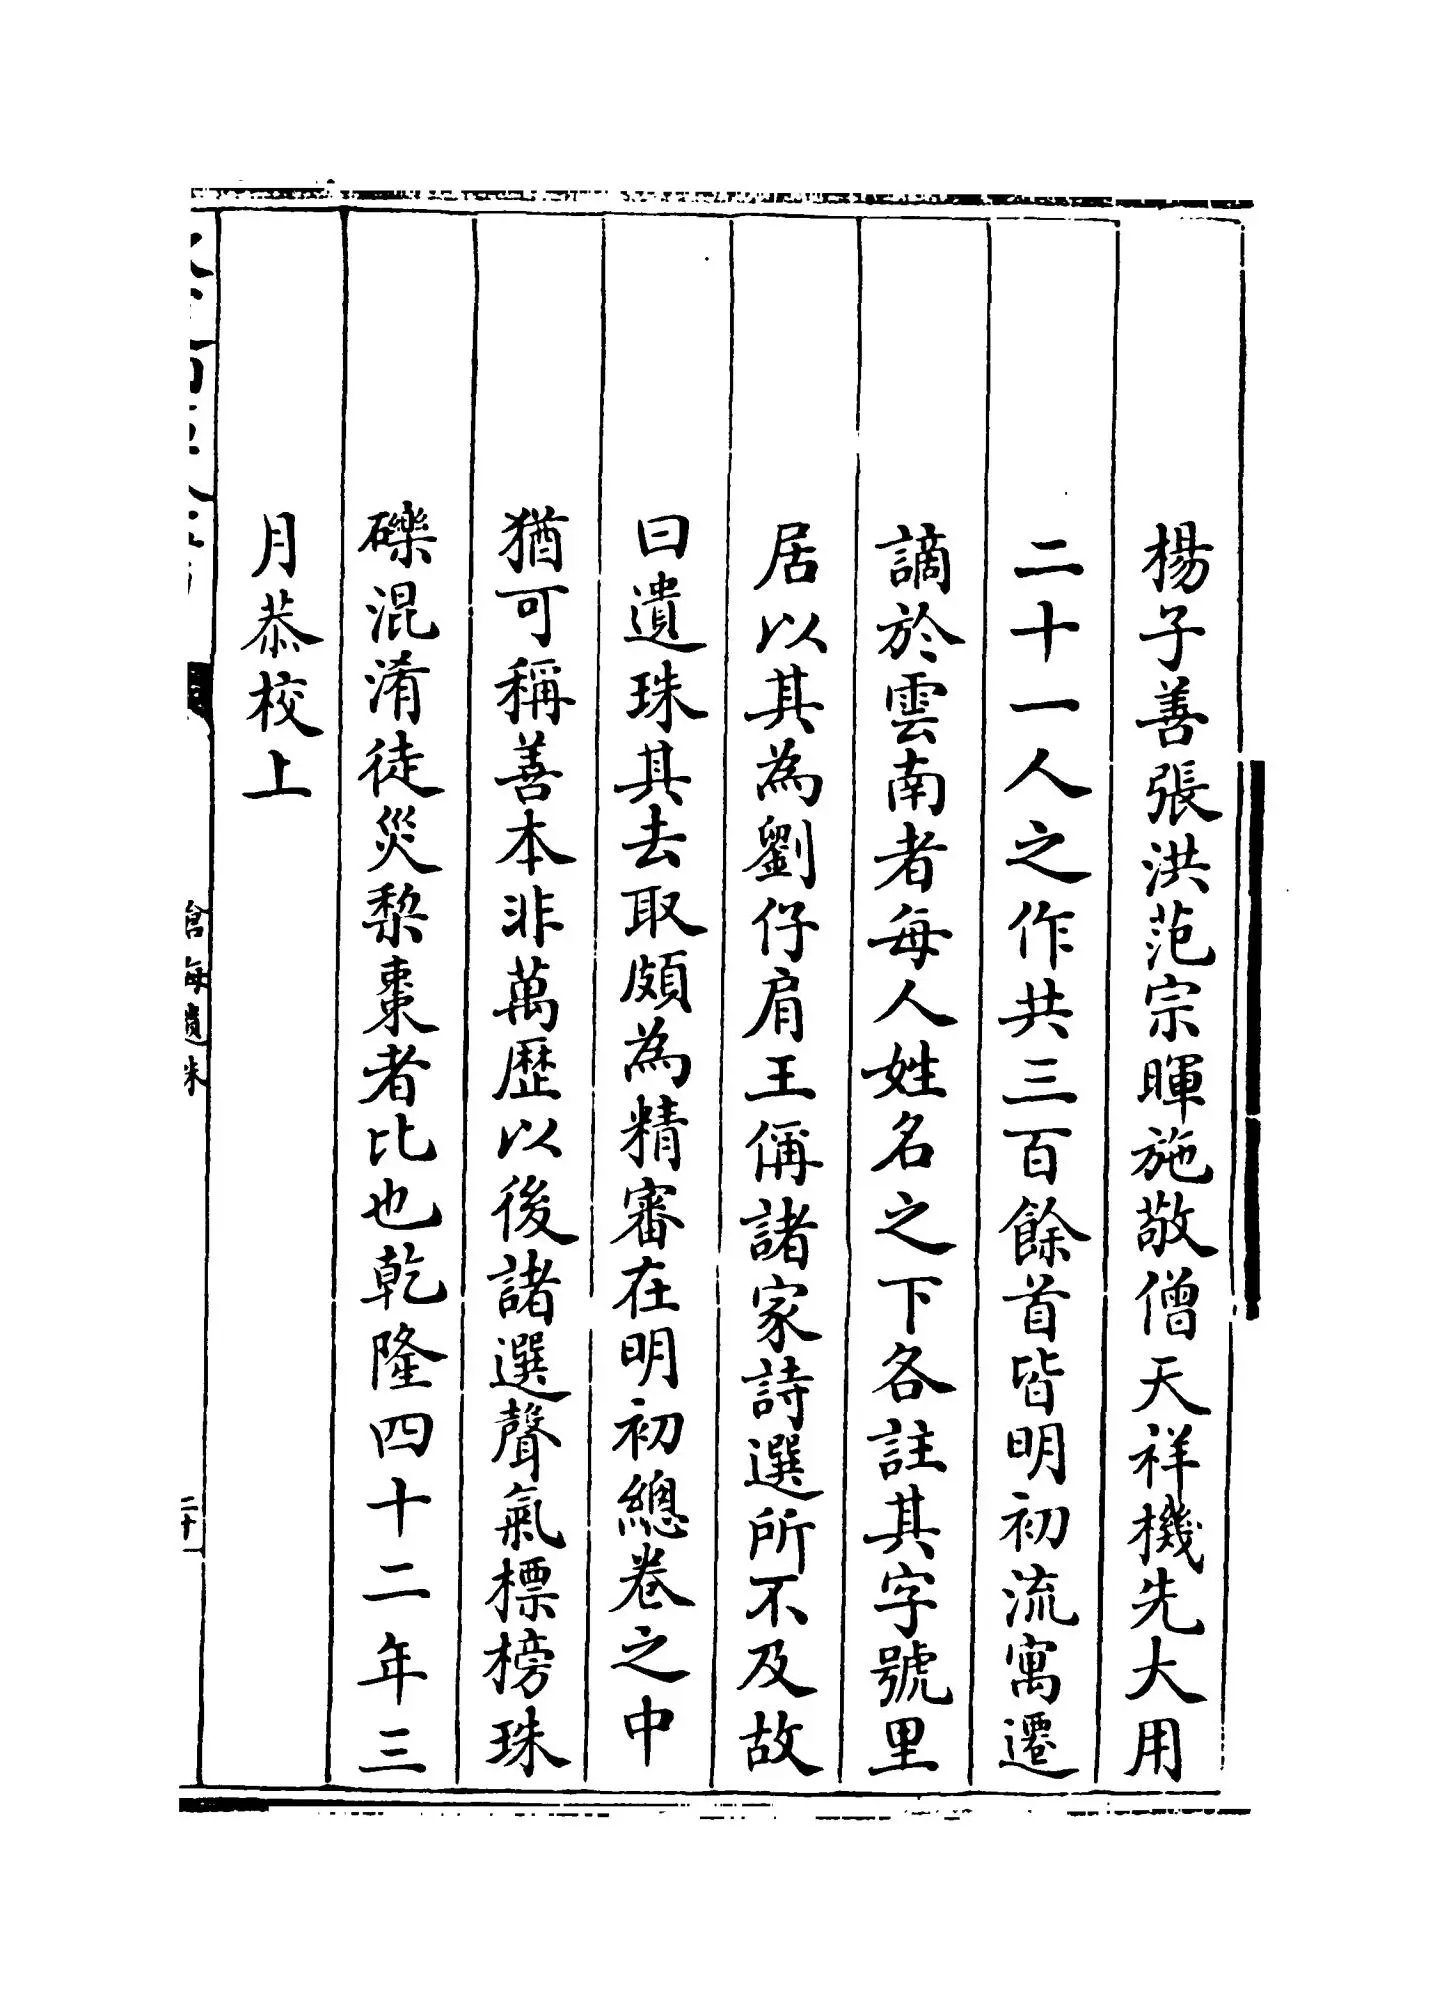 楊子善張洪范宗暉施敬僧天祥機先大用
二十一人之作共三百餘首皆明初流寓遷
謫於雲南者每人姓名之下各註其字號里
居以其為劉仔肩王偁諸家詩選所不及故
曰遺珠其去取頗為精審在明初總卷之中
猶可稱善本非萬歴以後諸選聲氣標榜珠
礫混淆徒災棃棗者比也乾隆四十二年三
月恭校上
滄海遺珠
二十一